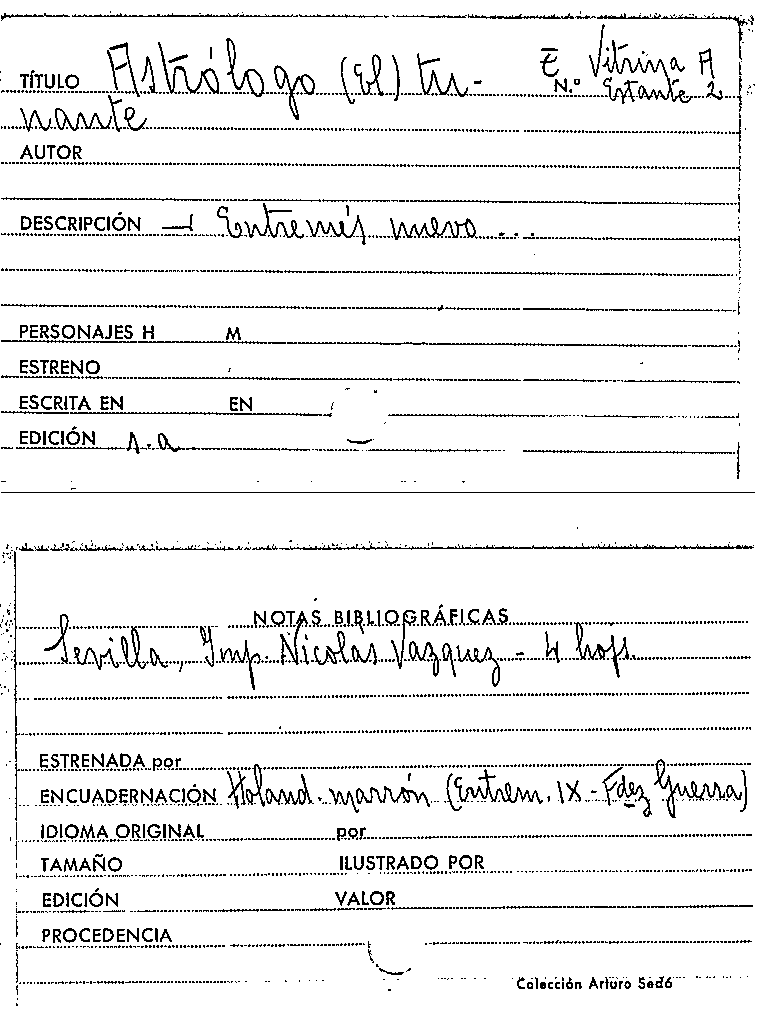 TÍTULO Astrólogo (El) tu- E Vitrina A
N.º Estante 2
nante
AUTOR
DESCRIPCIÓN — Entremés nuevo ...
PERSONAJES H M
ESTRENO
ESCRITA EN EN
EDICIÓN s.a
NOTAS BIBLIOGRÁFICAS
Sevilla, Imp. Nicolás Vazquez - 4 hojs.
ESTRENADA por
ENCUADERNACIÓN Holand. marrón (Entrem. IX - Fdez Guerra)
IDIOMA ORIGINAL por
TAMAÑO ILUSTRADO POR
EDICIÓN VALOR
PROCEDENCIA
Colección Arturo Sedó